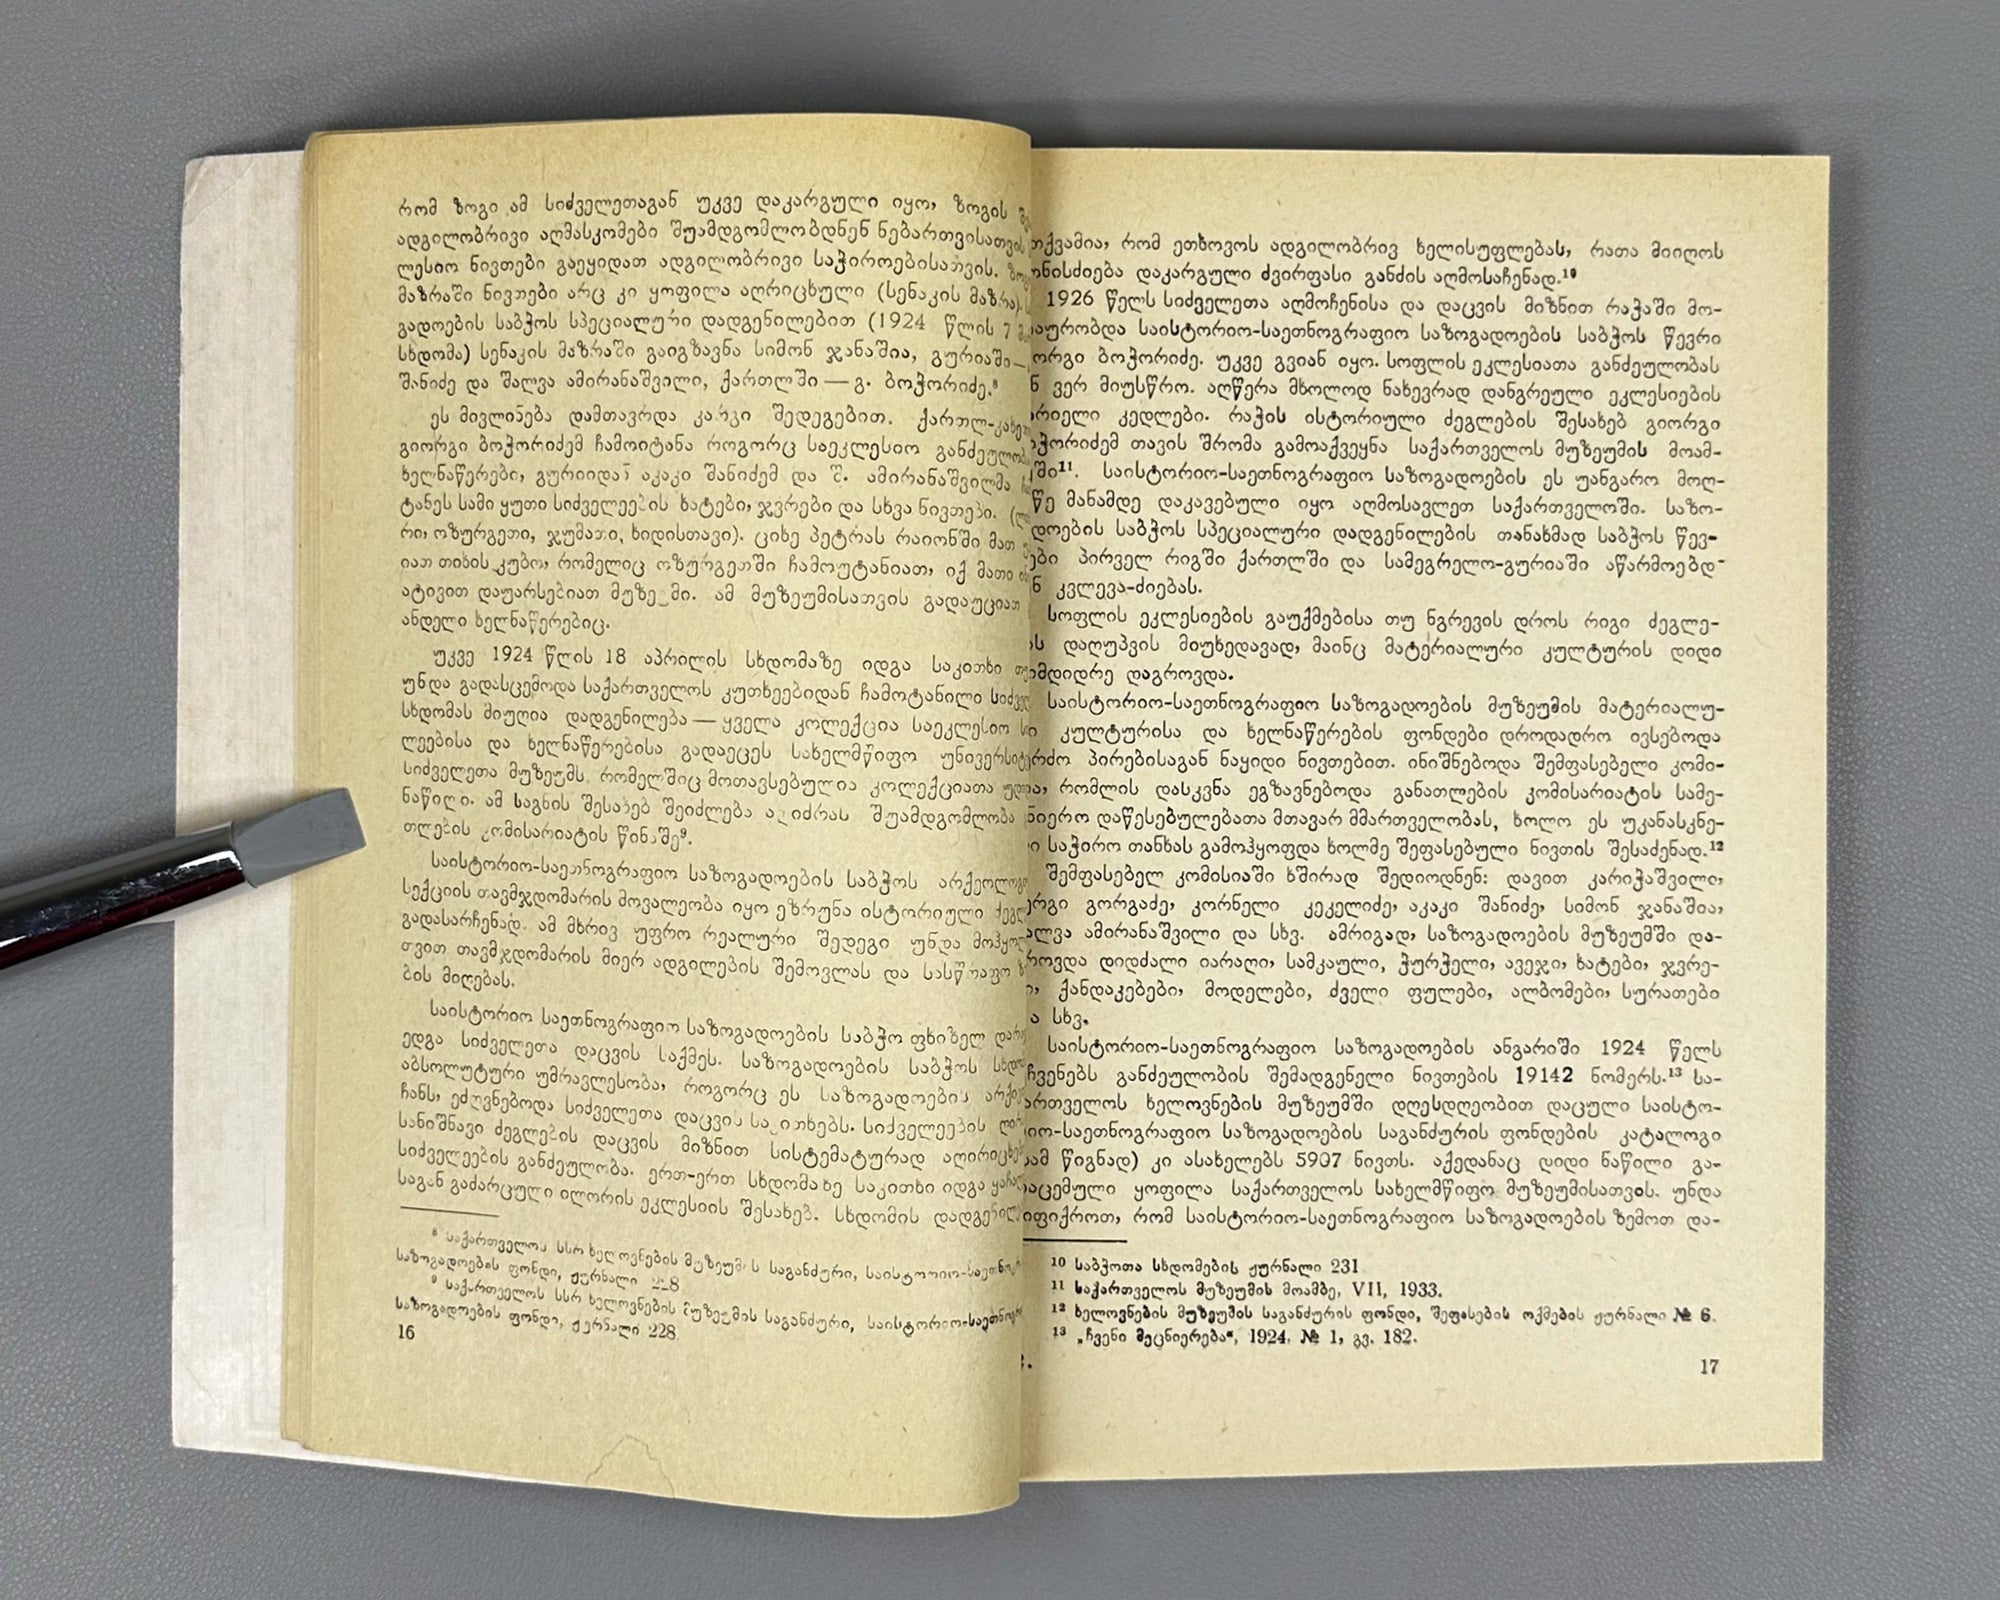 რომ ზოგი ამ სიძველეთაგან უკვე დაკარგული იყო, ზოგის
ადგილობრივი აღმასკომები შუამდგომლობდნენ ნებართვისათვის
ლესიო ნივთები გაეყიდათ ადგილობრივი საჭიროებისათვის.
მაზრაში ნივთები არც კი ყოფილა აღრიცხული (სენაკის მაზრა).
გადოების საბჭოს სპეციალური დადგენილებით (1924 წლის 7
სხდომა) სენაკის მაზრაში გაიგზავნა სიმონ ჯანაშია, გურიაში —
შანიძე და შალვა ამირანაშვილი, ქართლში — გ. ბოჭორიძე.⁸
ეს მივლინება დამთავრდა კარგი შედეგებით. ქართლ-კახე
გიორგი ბოჭორიძემ ჩამოიტანა როგორც საეკლესიო განძეულობა
ხელნაწერები, გურიიდან აკაკი შანიძემ და შ. ამირანაშვილმა
ტანეს სამი ყუთი სიძველეების ხატები, ჯვრები და სხვა ნივთები.
რი, ოზურგეთი, ჯუმათი, ხიდისთავი). ციხე პეტრას რაიონში მათ
იათ თიხის კუბო, რომელიც ოზურგეთში ჩამოუტანიათ, იქ მათი
ატივით დაუარსებიათ მუზეუმი. ამ მუზეუმისათვის გადაუციათ
ანდელი ხელნაწერებიც.
უკვე 1924 წლის 18 აპრილის სხდომაზე იდგა საკითხი
უნდა გადასცემოდა საქართველოს კუთხეებიდან ჩამოტანილი
სხდომას მიუღია დადგენილება — ყველა კოლექცია საეკლესიო
ლეებისა და ხელნაწერებისა გადაეცეს სახელმწიფო უნივერსიტე
სიძველეთა მუზეუმს, რომელშიც მოთავსებულია კოლექციათა
ნაწილი. ამ საგნის შესახებ შეიძლება აღიძრას შუამდგომლობა
თლების კომისარიატის წინაშე⁹.
საისტორიო-საეთნოგრაფიო საზოგადოების საბჭოს არქეოლოგი
სექციის თავმჯდომარის მოვალეობა იყო ეზრუნა ისტორიული
გადასარჩენად. ამ მხრივ უფრო რეალური შედეგი უნდა მოჰყოლ
თვით თავმჯდომარის მიერ ადგილების შემოვლას და სასწრაფო
ბის მიღებას.
საისტორიო საეთნოგრაფიო საზოგადოების საბჭო ფხიზელ
ედგა სიძველეთა დაცვის საქმეს. საზოგადოების საბჭოს
აბსოლუტური უმრავლესობა, როგორც ეს საზოგადოების
ჩანს, ეძღვნებოდა სიძველეთა დაცვის საკითხებს. სიძველეების
სანიშნავი ძეგლების დაცვის მიზნით სისტემატურად აღირიცხებ
სიძველეების განძეულობა. ერთ-ერთ სხდომაზე საკითხი იდგა
საგან გაძარცული ილორის ეკლესიის შესახებ. სხდომის
⁸ საქართველოს სსრ ხელოვნების მუზეუმის საგანძური, საისტორიო-საეთნოგრ
საზოგადოების ფონდი, ჟურნალი 228
⁹ საქართველოს სსრ ხელოვნების მუზეუმის საგანძური, საისტორიო-საეთნოგრ
საზოგადოების ფონდი, ჟურნალი 228
16
თქვამია, რომ ეთხოვოს ადგილობრივ ხელისუფლებას, რათა მიიღოს
ონისძიება დაკარგული ძვირფასი განძის აღმოსაჩენად.¹⁰
1926 წელს სიძველეთა აღმოჩენისა და დაცვის მიზნით რაჭაში მო-
აურობდა საისტორიო-საეთნოგრაფიო საზოგადოების საბჭოს წევრი
ორგი ბოჭორიძე. უკვე გვიან იყო. სოფლის ეკლესიათა განძეულობას
ნ ვერ მიუსწრო. აღწერა მხოლოდ ნახევრად დანგრეული ეკლესიების
რიელი კედლები. რაჭის ისტორიული ძეგლების შესახებ გიორგი
ჭორიძემ თავის შრომა გამოაქვეყნა საქართველოს მუზეუმის მოამ-
ში¹¹. საისტორიო-საეთნოგრაფიო საზოგადოების ეს უანგარო მოღ-
წე მანამდე დაკავებული იყო აღმოსავლეთ საქართველოში. საზო-
დოების საბჭოს სპეციალური დადგენილების თანახმად საბჭოს წევ-
ები პირველ რიგში ქართლში და სამეგრელო-გურიაში აწარმოებდ-
ნ კვლევა-ძიებას.
სოფლის ეკლესიების გაუქმებისა თუ ნგრევის დროს რიგი ძეგლე-
ს დაღუპვის მიუხედავად, მაინც მატერიალური კულტურის დიდი
იმდიდრე დაგროვდა.
საისტორიო-საეთნოგრაფიო საზოგადოების მუზეუმის მატერიალუ-
ი კულტურისა და ხელნაწერების ფონდები დროდადრო ივსებოდა
ერძო პირებისაგან ნაყიდი ნივთებით. ინიშნებოდა შემფასებელი კომი-
ია, რომლის დასკვნა ეგზავნებოდა განათლების კომისარიატის სამე-
ნიერო დაწესებულებათა მთავარ მმართველობას, ხოლო ეს უკანასკნე-
ი საჭირო თანხას გამოჰყოფდა ხოლმე შეფასებული ნივთის შესაძენად.¹²
შემფასებელ კომისიაში ხშირად შედიოდნენ: დავით კარიჭაშვილი,
ორგი გორგაძე, კორნელი კეკელიძე, აკაკი შანიძე, სიმონ ჯანაშია,
ალვა ამირანაშვილი და სხვ. ამრიგად, საზოგადოების მუზეუმში და-
როვდა დიდძალი იარაღი, სამკაული, ჭურჭელი, ავეჯი, ხატები, ჯვრე-
ი, ქანდაკებები, მოდელები, ძველი ფულები, ალბომები, სურათები
ა სხვ.
საისტორიო-საეთნოგრაფიო საზოგადოების ანგარიში 1924 წელს
ჩვენებს განძეულობის შემადგენელი ნივთების 19142 ნომერს.¹³ სა-
ართველოს ხელოვნების მუზეუმში დღესდღეობით დაცული საისტო-
იო-საეთნოგრაფიო საზოგადოების საგანძურის ფონდების კატალოგი
სამ წიგნად) კი ასახელებს 5907 ნივთს. აქედანაც დიდი ნაწილი გა-
აცემული ყოფილა საქართველოს სახელმწიფო მუზეუმისათვის. უნდა
იფიქროთ, რომ საისტორიო-საეთნოგრაფიო საზოგადოების ზემოთ და-
¹⁰ საბჭოთა სხდომების ჟურნალი 231
¹¹ საქართველოს მუზეუმის მოამბე, VII, 1933.
¹² ხელოვნების მუზეუმის საგანძურის ფონდი, შეფასების ოქმების ჟურნალი № 6.
¹³ „ჩვენი მეცნიერება“, 1924. № 1, გვ. 182.
17